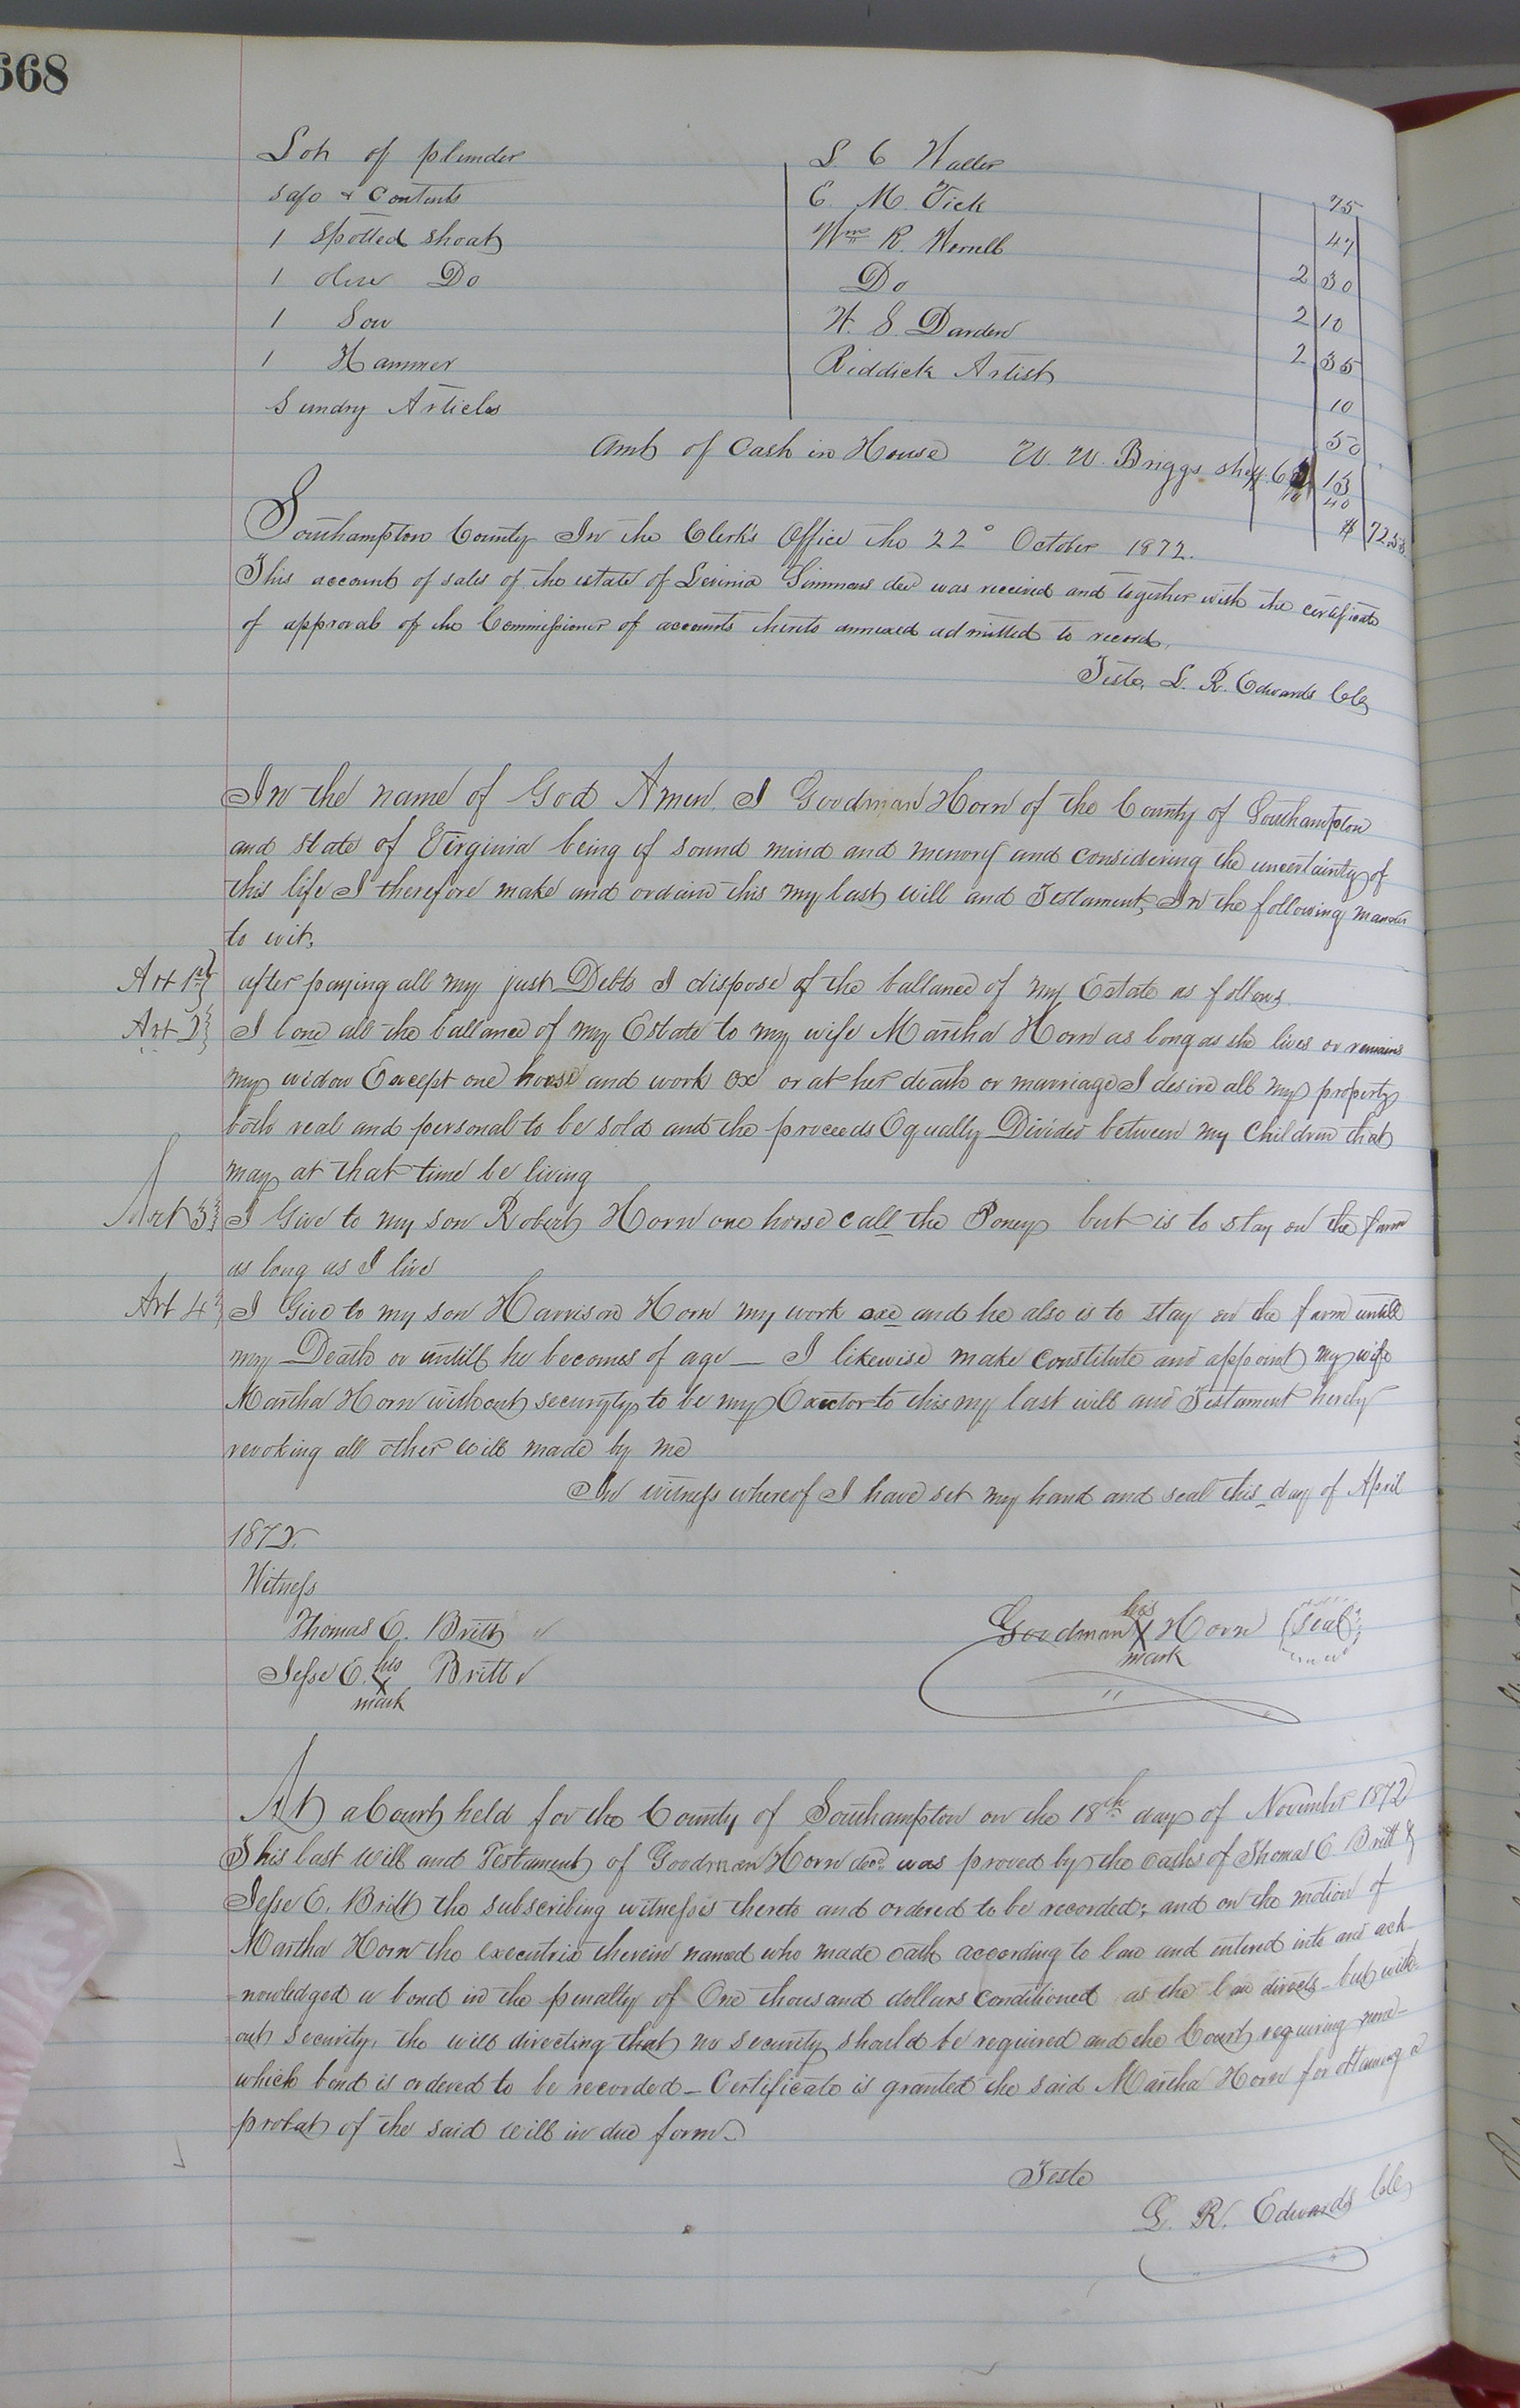 668
Lot of plunder L. C Waller 75
Safe & Contents E. M. Vick 47
1 Spotted shoat Wm R. Worrell 2 30
1 olive Do Do 2 10
1 Sow W. S. Darden 2 35
1 Hammer Riddick Artist 10
Sundry Articles 50
Amt of Cash in House W. W. Briggs shff. 13
40
$
Southampton County In the Clerk's Office the 22° October 1872.
This account of sales of the estate of Levinia Simmons decd was received and together with the certificate
of approval of the Commissioner of accounts thereto annexed admitted to record,
Teste, L. R. Edwards Clk
In the name of God Amen. I Goodman Horn of the County of Southampton
and state of Virginia being of sound mind and memory and considering the uncertainty of
this life I therefore make and ordain this my last will and Testament, In the following manner
to wit,
Art 1st after paying all my just Debts I dispose of the ballance of my Estate as follows
Art 2 I lone all the ballance of my Estate to my wife Martha Horn as long as she lives or remains
my widow Except one horse and work ox or at her death or marriage I desire all my property
both real and personal to be sold and the proceeds Equally Divided between my Children that
may at that time be living
Art 3 I Give to my son Robert Horn one horse call the Poney but is to stay on the farm
as long as I live
Art 4 I Give to my son Harrison Horn my work oxe and he also is to stay on the farm untill
my Death or untill he becomes of age — I likewise make Constitute and appoint my wife
Martha Horn without securyty to be my Exector to this my last will and Testament hereby
revoking all other will made by me
In witness whereof I have set my hand and seal this day of April
1872.
Witness
Thomas E. Britt
Goodman his X mark Horn (Seal)
Jesse E. his X mark Britt
At a Court held for the County of Southampton on the 18th day of November 1872
This last Will and Testament of Goodman Horn decd was proved by the oaths of Thomas E Britt &
Jesse E. Britt the subscribing witnesses thereto and ordered to be recorded; and on the motion of
Martha Horn the executrix therein named who made oath according to law and entered into and ack-
nowledged a bond in the penalty of One thousand dollars Conditioned as the law directs but with-
out security, the will directing that no security should be required and the Court requiring none—
which bond is ordered to be recorded — Certificate is granted the said Martha Horn for obtaining a
probat of the said will in due form.
Teste
L. R. Edwards Clk